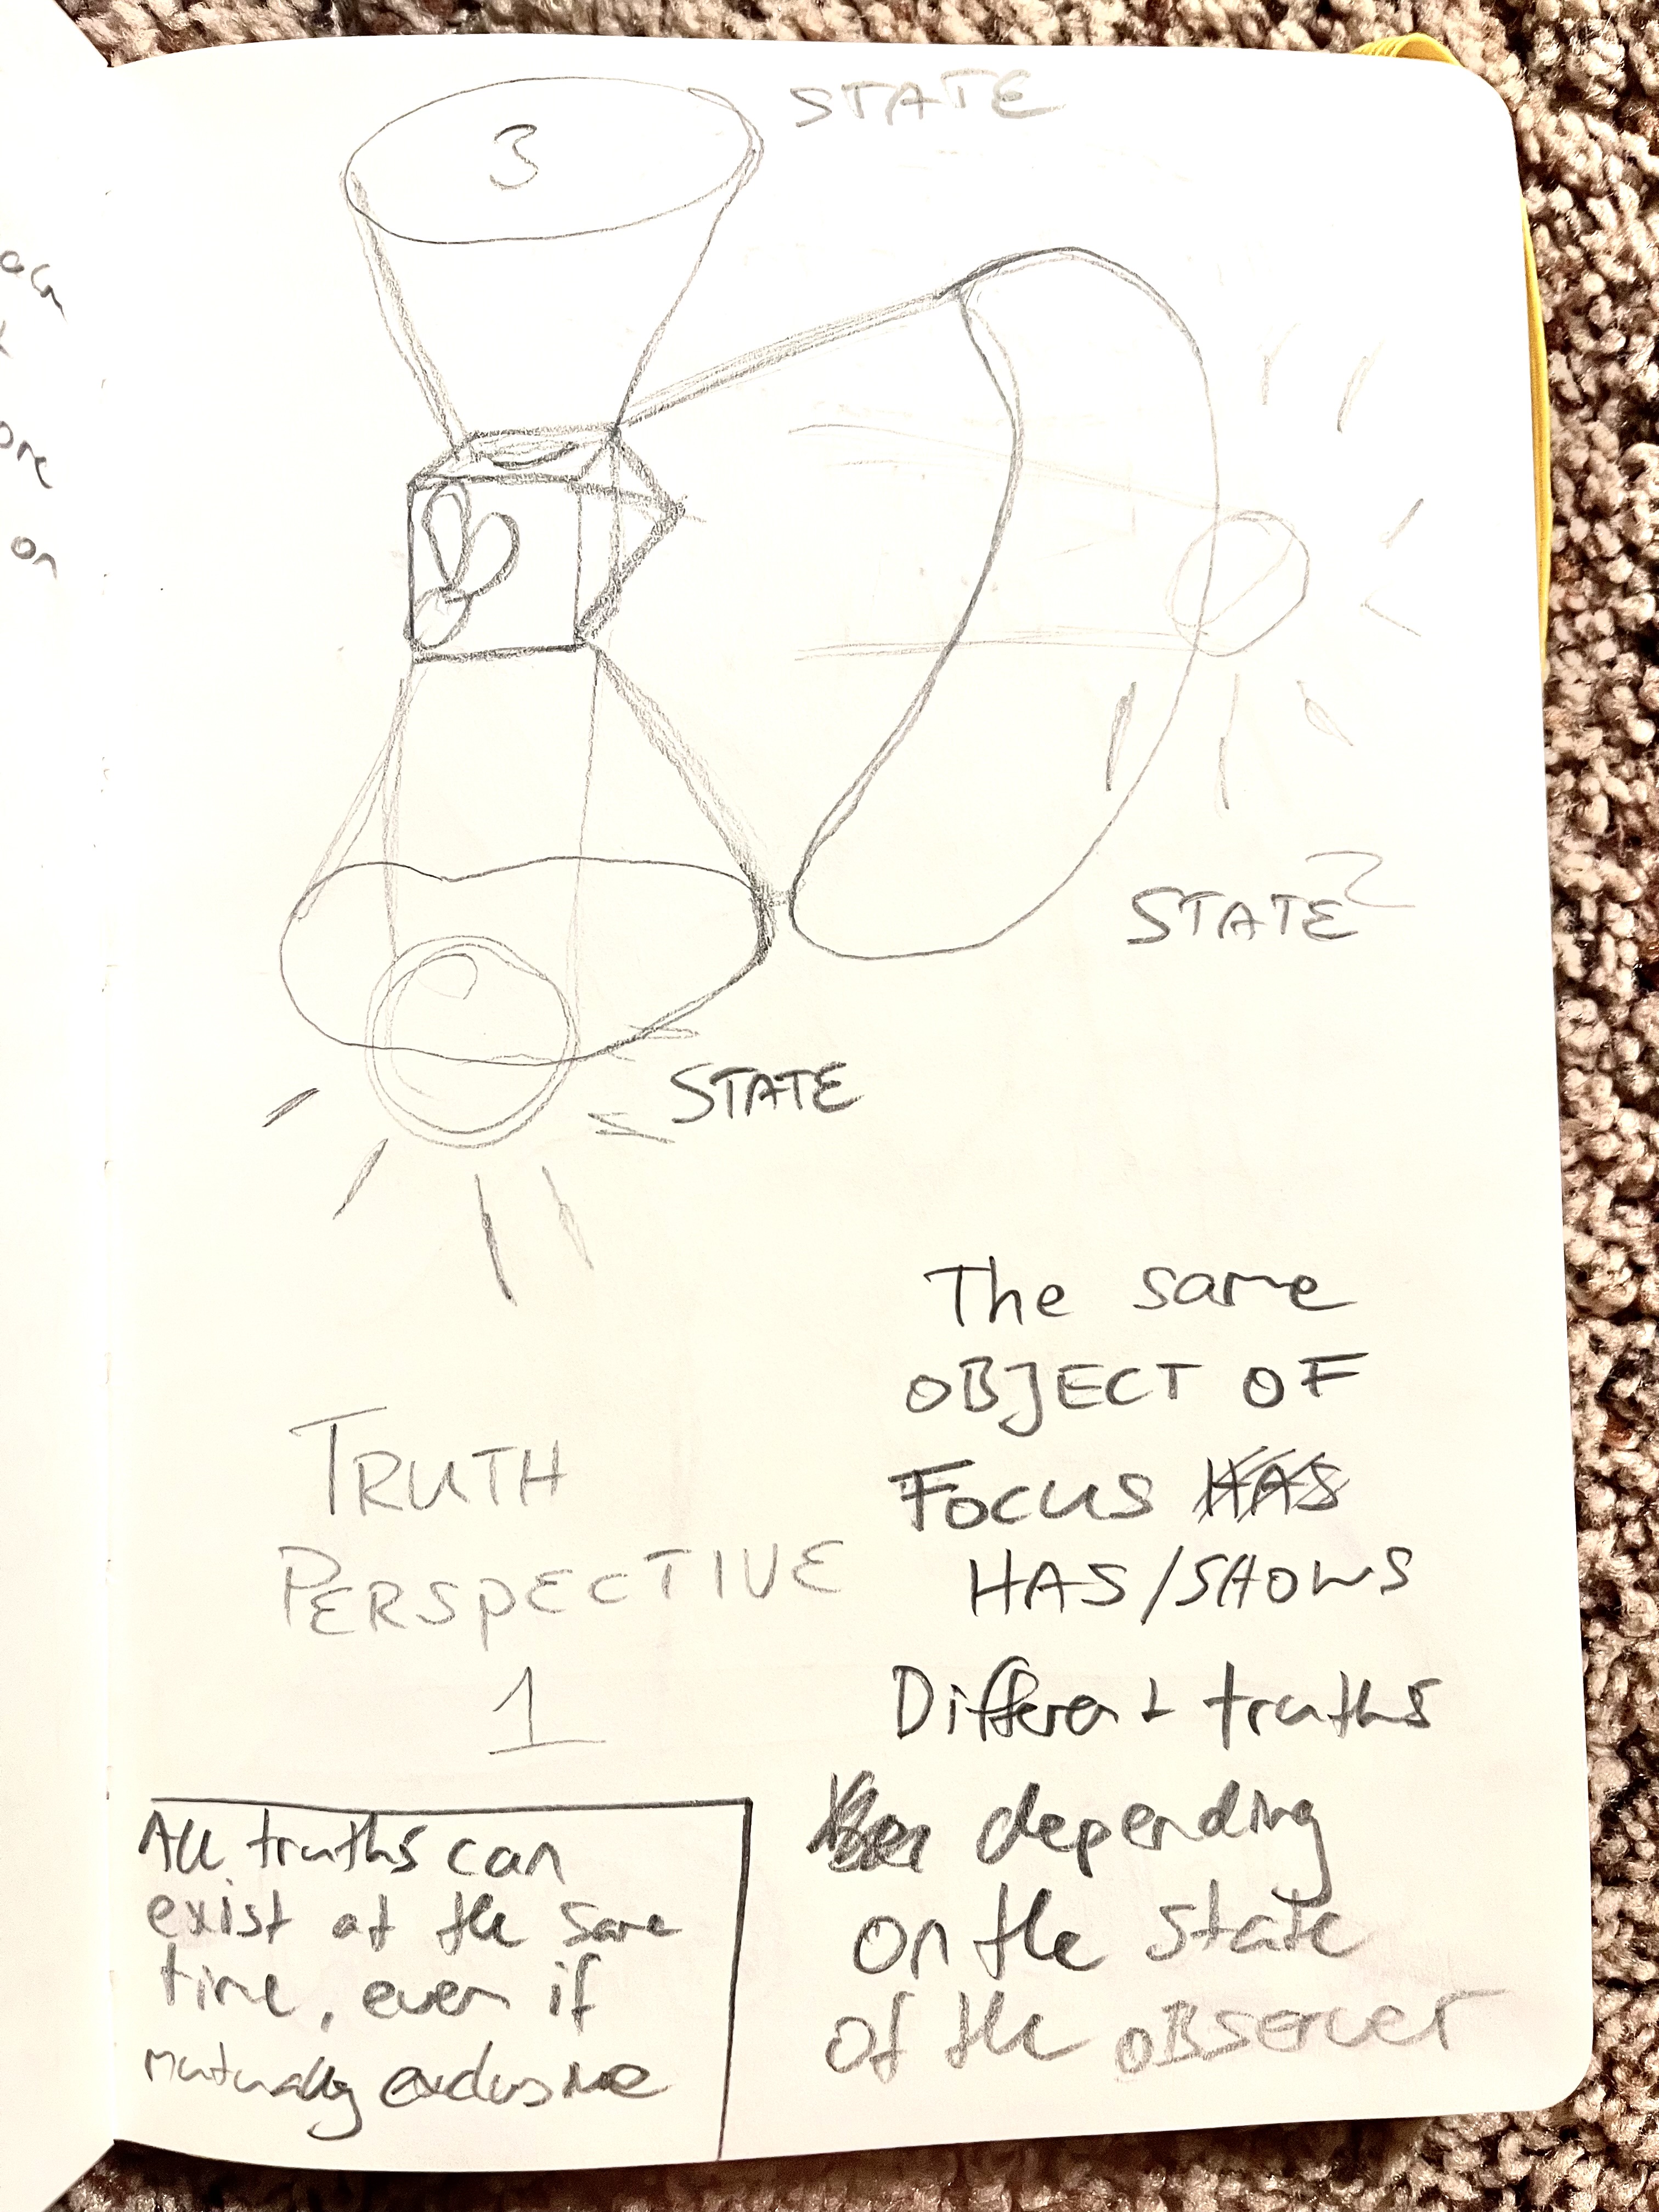 3
STATE
ore
on
STATE 2
STATE
The same
OBJECT OF
TRUTH
FOCUS HAS
PERSPECTIVE
HAS/SHOWS
1
Different truths
All truths can
exist at the same
time, even if
mutually exclusive
depending
on the state
of the observer